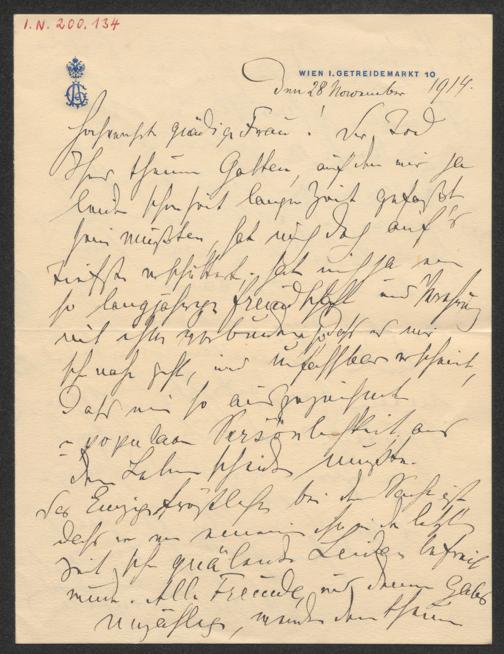 I.N. 200.134
WIEN I. GETREIDEMARKT 10
Den 28 November 1914.
Hochverehrte gnädige Frau! Der Tod
Ihres theuren Gatten, auf den wir ja
leider schon seit langer Zeit gefaßt
sein mußten, hat mich doch auf's
tiefste erschüttert. hat mich ja eine
so langjährige Freundschaft und Verehrung
mit ihm verbunden, so daß es mir
sehr nahe geht, und unfassbar erscheint,
Daß ein so ausgezeichnete
populäre Persönlichkeit aus
dem Leben scheiden mußte.
Das Einzige tröstliche bei der Sache ist
daß er von seinem in der letzten
Zeit sehr quälenden Leiden befreit
wurde. Alle Freunde, und deren gab es
unzählige, werden dem theuren